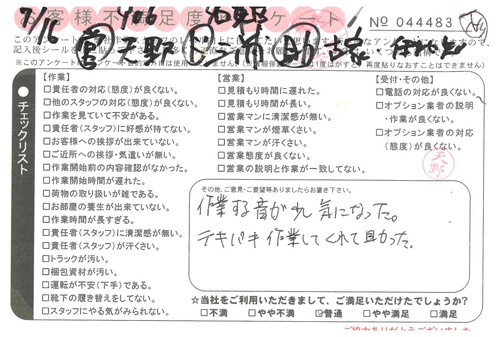 7/16
お客様不満足度アンケート
No 044483
【作業】
□責任者の対応(態度)が良くない。
□他のスタッフの対応(態度)が良くない。
□作業を見ていて不安がある。
□責任者(スタッフ)に好感が持てない。
□お客様への挨拶が出来ていない。
□ご近所への挨拶・気遣いが無い。
□作業開始前の内容確認がなかった。
□作業開始時間が遅れた。
□荷物の取り扱いが雑である。
□お部屋の養生が出来ていない。
□作業時間が長すぎる。
□責任者(スタッフ)に清潔感が無い。
□責任者(スタッフ)が汗くさい。
□トラックが汚い。
□梱包資材が汚い。
□運転が不安(下手)である。
□靴下の履き替えをしてない。
□スタッフにやる気がみられない。
【営業】
□見積もり時間に遅れた。
□見積もり時間が長い。
□営業マンに清潔感が無い。
□営業マンが煙草くさい。
□営業マンが汗くさい。
□営業態度が良くない。
□営業の説明と作業が一致してない。
【受付・その他】
□電話の対応が良くない。
□オプション業者の説明
・作業が良くない。
□オプション業者の対応
(態度)が良くない。
天野
チェックリスト
その他、ご意見・ご要望等ありましたらお書き下さい。
作業する音がすれ 気になった。
テキパキ作業してくれて助かった。
☆当社をご利用いただきまして、ご満足いただけたでしょうか?
□不満 □やや不満 ☑普通 □やや満足 □満足
ご協力ありがとうございました